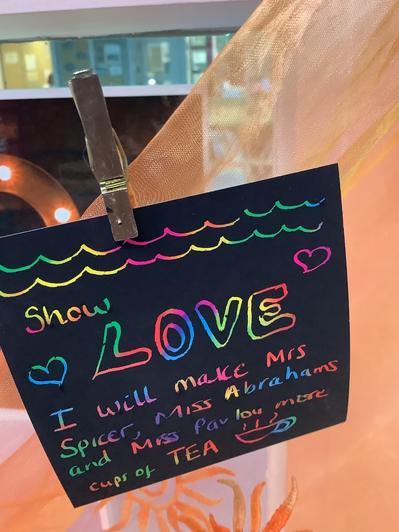 Show
LOVE
I will make Mrs
Spicer, Miss Abrahams
and Miss Pavlou more
cups of TEA